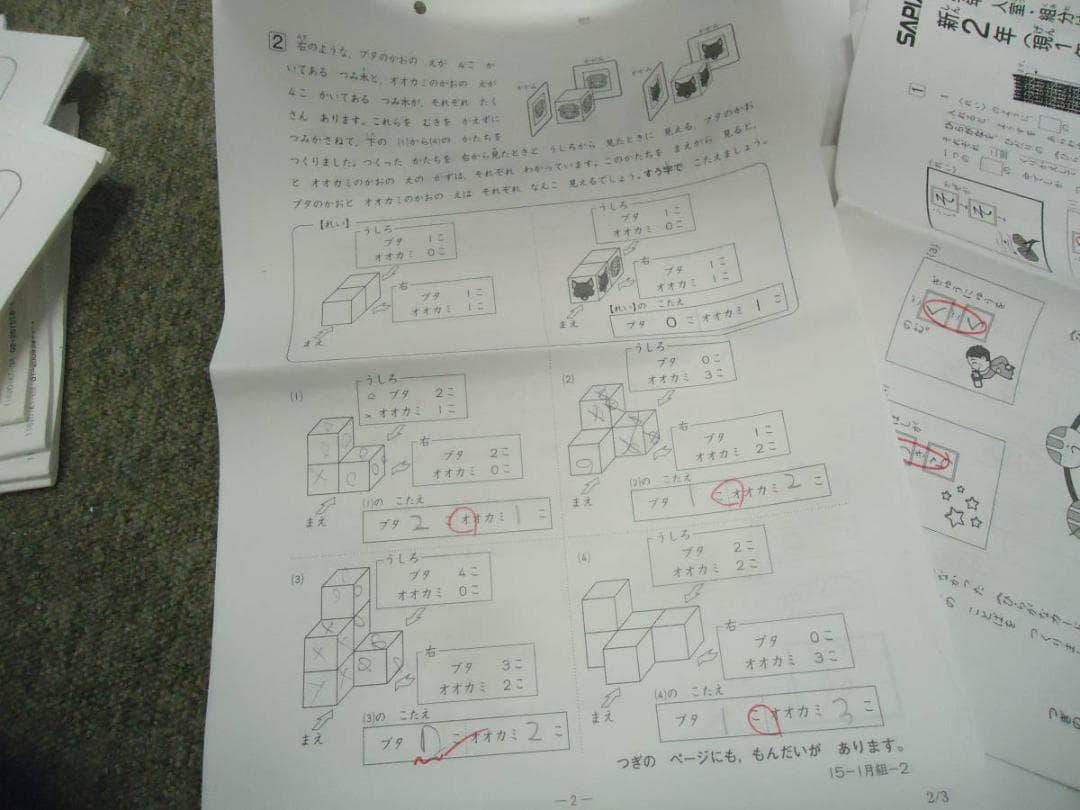 2 右のような、ブタのかおの えが 4こ か
いてある つみ木と、オオカミのかおの えが
4こ かいてある つみ木が、それぞれ たく
さん あります。これらを むきを かえずに
つみかさねて、下の (1)から(4)の かたちを
つくりました。つくった かたちを 右から見たときと うしろから 見たときに 見える、ブタのかお
と オオカミのかおの えの かずは、それぞれ わかっています。このかたちを まえから 見ると、
ブタのかおと オオカミのかおの えは それぞれ なんこ 見えるでしょう。すう字で こたえましょう。
【れい】
うしろ
ブタ 1こ
オオカミ 0こ
右
ブタ 1こ
オオカミ 1こ
まえ
うしろ
ブタ 1こ
オオカミ 0こ
右
ブタ 1こ
オオカミ 1こ
まえ
【れい】の こたえ
ブタ 0 こ オオカミ 1 こ
(1)
うしろ
ブタ 2こ
オオカミ 1こ
右
ブタ 2こ
オオカミ 0こ
まえ
(1)の こたえ
ブタ 2 こ オオカミ 1 こ
(2)
うしろ
ブタ 0こ
オオカミ 3こ
右
ブタ 1こ
オオカミ 2こ
まえ
(2)の こたえ
ブタ 1 こ オオカミ 2 こ
(3)
うしろ
ブタ 4こ
オオカミ 0こ
右
ブタ 3こ
オオカミ 2こ
まえ
(3)の こたえ
ブタ こ オオカミ 2 こ
(4)
うしろ
ブタ 2こ
オオカミ 2こ
右
ブタ 0こ
オオカミ 3こ
まえ
(4)の こたえ
ブタ 1 こ オオカミ 3 こ
つぎの ページにも、もんだいが あります。
15-1月組-2
-2-
2/3
SAPI
新
2年
(現1
入室・組分
1
(3)
ぎゅうにゅうを
のむ。